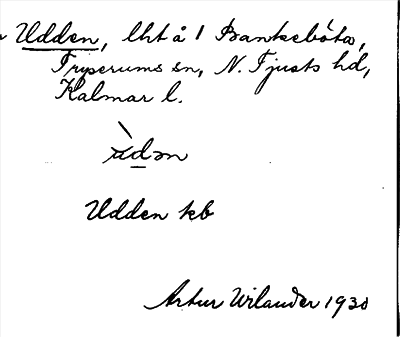 Udden, lht å 1 Bankebota,
Tryserums sn, N. Tjusts hd,
Kalmar l.
ùdən
Udden kb
Artur Wilander 1930